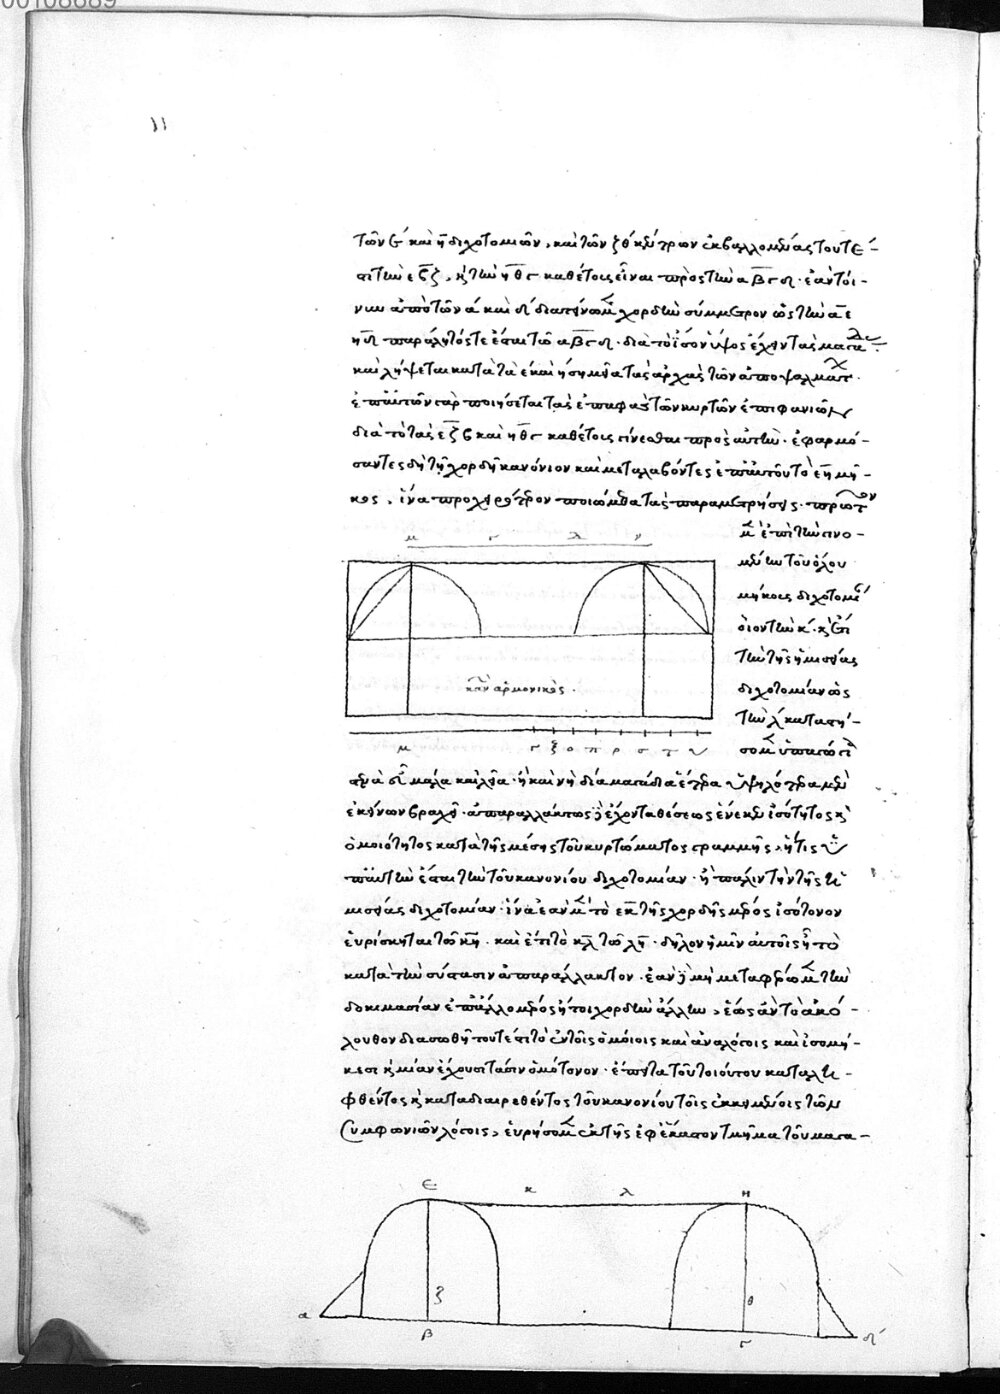 11
τῶν β καὶ γ διχοτομιῶν, καὶ τῶν ζ θ κέντρων ἐκβαλλομένας τουτέ-
στι τὴν εζβ, κ̀ τὴν ηθγ καθέτους εἶναι πρὸς τὴν αβγδ. ἐὰν τοί-
νυν ἀπὸ τῶν α καὶ δ διατείνωμεν χορδὴν σύμμετρον ὡς τὴν αε
ηδ παράλληλός τε ἔσται τῶ αβγδ. διὰ τὸ ἴσον ὕψος ἔχειν τὰς μαγάδας
καὶ λήψεται κατὰ τὰ ε καὶ η σημεῖα τὰς ἀρχὰς τῶν ἀποψαλμάτων.
ἐπ᾽ αὐτῶν γὰρ ποιήσεται τὰς ἐπαφὰς τῶν κυρτῶν ἐπιφανειῶν
διὰ τὸ τὰς εζβ καὶ ηθγ καθέτους γίνεσθαι πρὸς αὐτήν. ἐφαρμό-
σαντες δὴ τῇ χορδῇ κανόνιον καὶ μεταλαβόντες ἐπ᾽ αὐτοῦ τὸ εη μῆ-
κος, ἵνα προχειρότερον ποιώμεθα τὰς παραμετρήσεις. πρῶτον
μὲν ἐπὶ τὴν γινο-
μένην τοῦ ὅλου
μήκους διχοτομίαν
οἷον τὴν κ. κ̀ ἔτι
τὴν τῆς ἡμισείας
διχοτομίαν ὡς
τὴν λ καταστή-
σομεν
μ γ λ ν
κανὼν ἁρμονικός.
μ γ ξ ο π ρ σ τ υ
ἐκείνων βραχεῖ. ἀπαραλλάκτως δὲ ἔχοντα θέσεως ἕνεκεν ἰσότητος κ̀
ὁμοιότητος κατὰ τῆς μέσης τοῦ κυρτώματος γραμμῆς, ἥτις
ἔσται τὴν τοῦ κανονίου διχοτομίαν. ἢ πάλιν τὴν τῆς ἡ-
μισείας διχοτομίαν. ἵνα ἐὰν μὲν τὸ εκ τῆς χορδῆς μέρος ἰσότονον
εὑρίσκηται τῶ κη. καὶ ἔτι τὸ κλ τῶ λη. δῆλον ἡμῖν αὐτοῖς ᾖ τὸ
κατὰ τὴν σύστασιν ἀπαράλλακτον. ἐὰν δὲ μὴ μεταφέρωμεν τὴν
δοκιμασίαν ἐπ᾽ ἄλλο μέρος ἤτοι χορδὴν ἄλλην, ἕως ἂν τὸ ἀκό-
λουθον διασωθῇ τουτέστι τὸ ἐν τοῖς ὁμοίοις καὶ ἀναλόγοις καὶ ἰσομή-
κεσι κ̀ μίαν ἔχουσι τάσιν ὁμότονον. ἔπειτα τοῦ τοιούτου καταλη-
φθέντος κ̀ καταδιαιρεθέντος τοῦ κανονίου τοῖς ἐκκειμένοις τῶν
συμφωνιῶν λόγοις, εὑρήσομεν ἐκ τῆς ἐφ᾽ ἕκαστον τμῆμα τοῦ μαγα-
ε κ λ η
ζ θ
α β γ δ